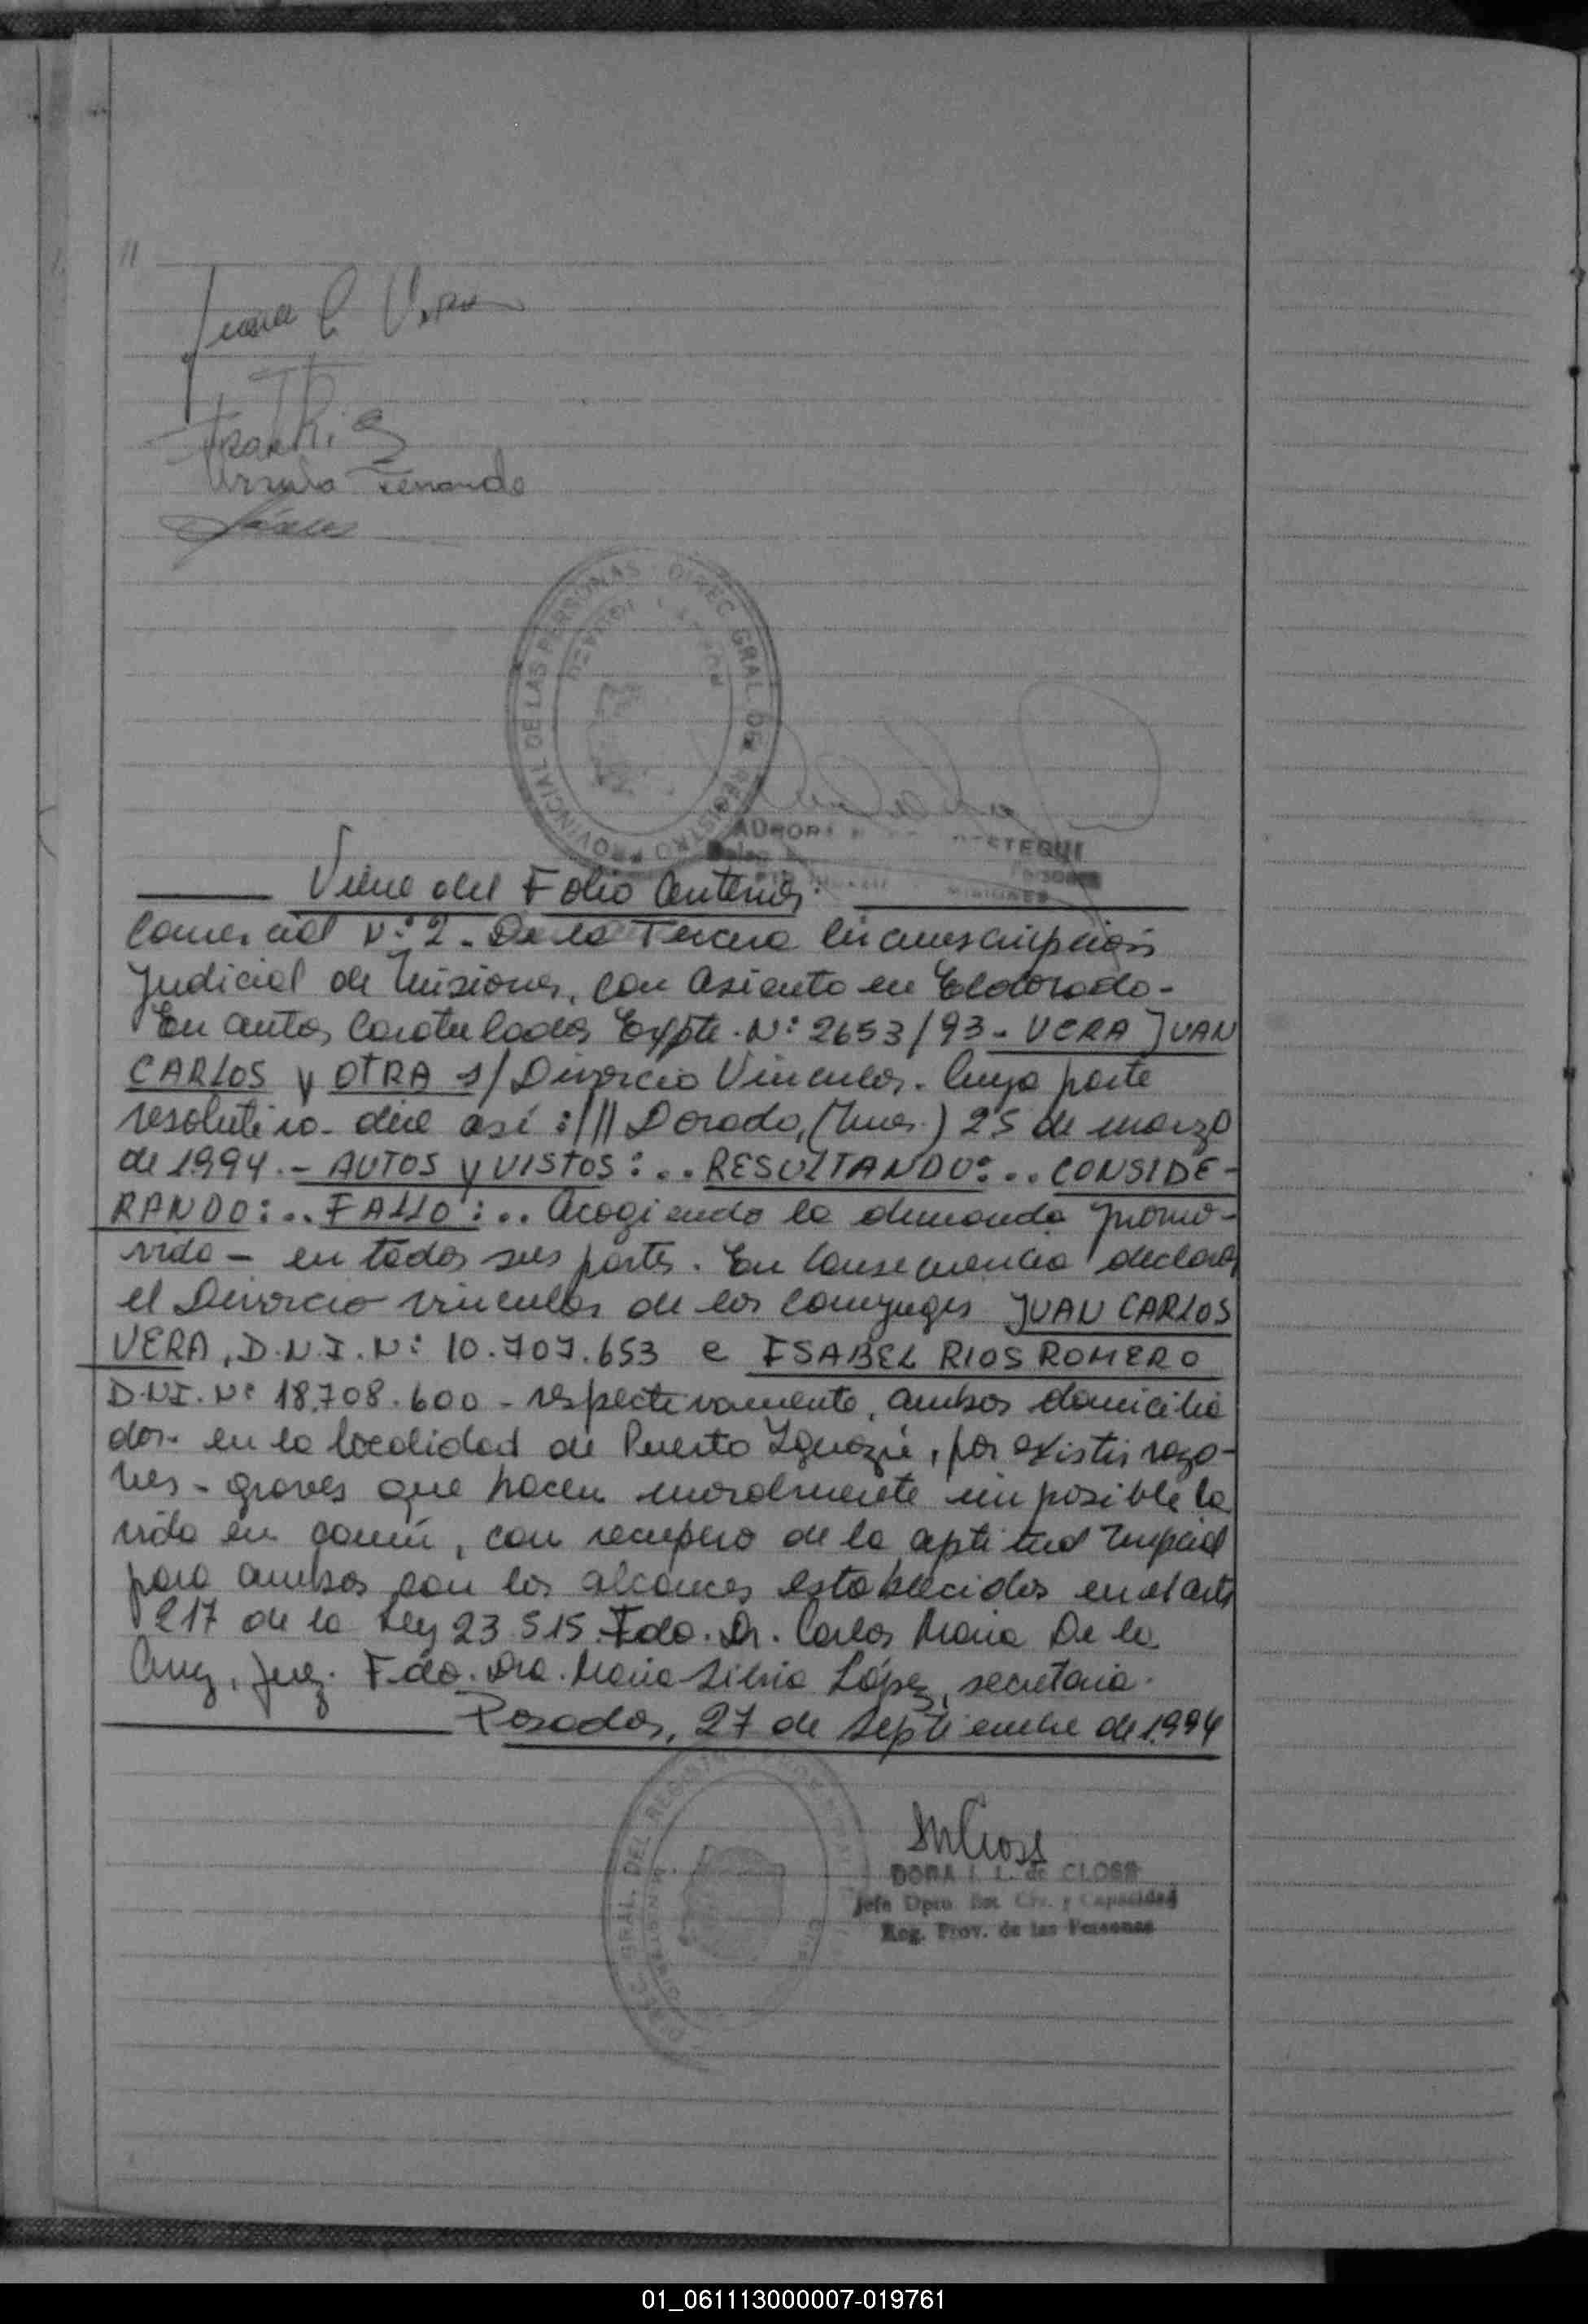 11
Juan C Vera
Ursula Fernande
DIREC. GRAL. DEL REGISTRO PROVINCIAL DE LAS PERSONAS
Viene del Folio Anterior.
Comercial N:º 2. De la Tercera Circunscripción
Judicial de Misiones, con asiento en Eldorado-
En autos Caratulados Expte. N: 2653/93 - VERA JUAN
CARLOS y OTRA s/ Divorcio Vincular. Cuya parte
resolutiva - dice así :/// Dorado, (Mnes.) 25 de marzo
de 1994. - AUTOS y VISTOS: .. RESULTANDO: .. CONSIDE-
RANDO: .. FALLO: .. Acogiendo la demanda promo-
vida - en todas sus partes. En Consecuencia declarar
el Divorcio vincular de los conyuges JUAN CARLOS
VERA, D.N.I. N: 10.707.653 e ISABEL RIOS ROMERO
D.N.I. Nº 18.708.600 - respectivamente, ambos domicilia
dos - en la localidad de Puerto Iguazú, por existir razo-
nes - graves que hacen moralmente imposible la
vida en común, con recupero de la aptitud nupcial
para ambos con los alcances establecidos en el art.
217 de la Ley 23.515. Fdo. Dr. Carlos Maria De la
Cruz, Juez. Fdo. Dra. Maria Silvia López, secretaria.
Posadas, 27 de Septiembre de 1.994
DORA I. L. de CLOSS
Jefe Dpto. Est. Civ. y Capacidad
Reg. Prov. de las Personas
01_061113000007-019761